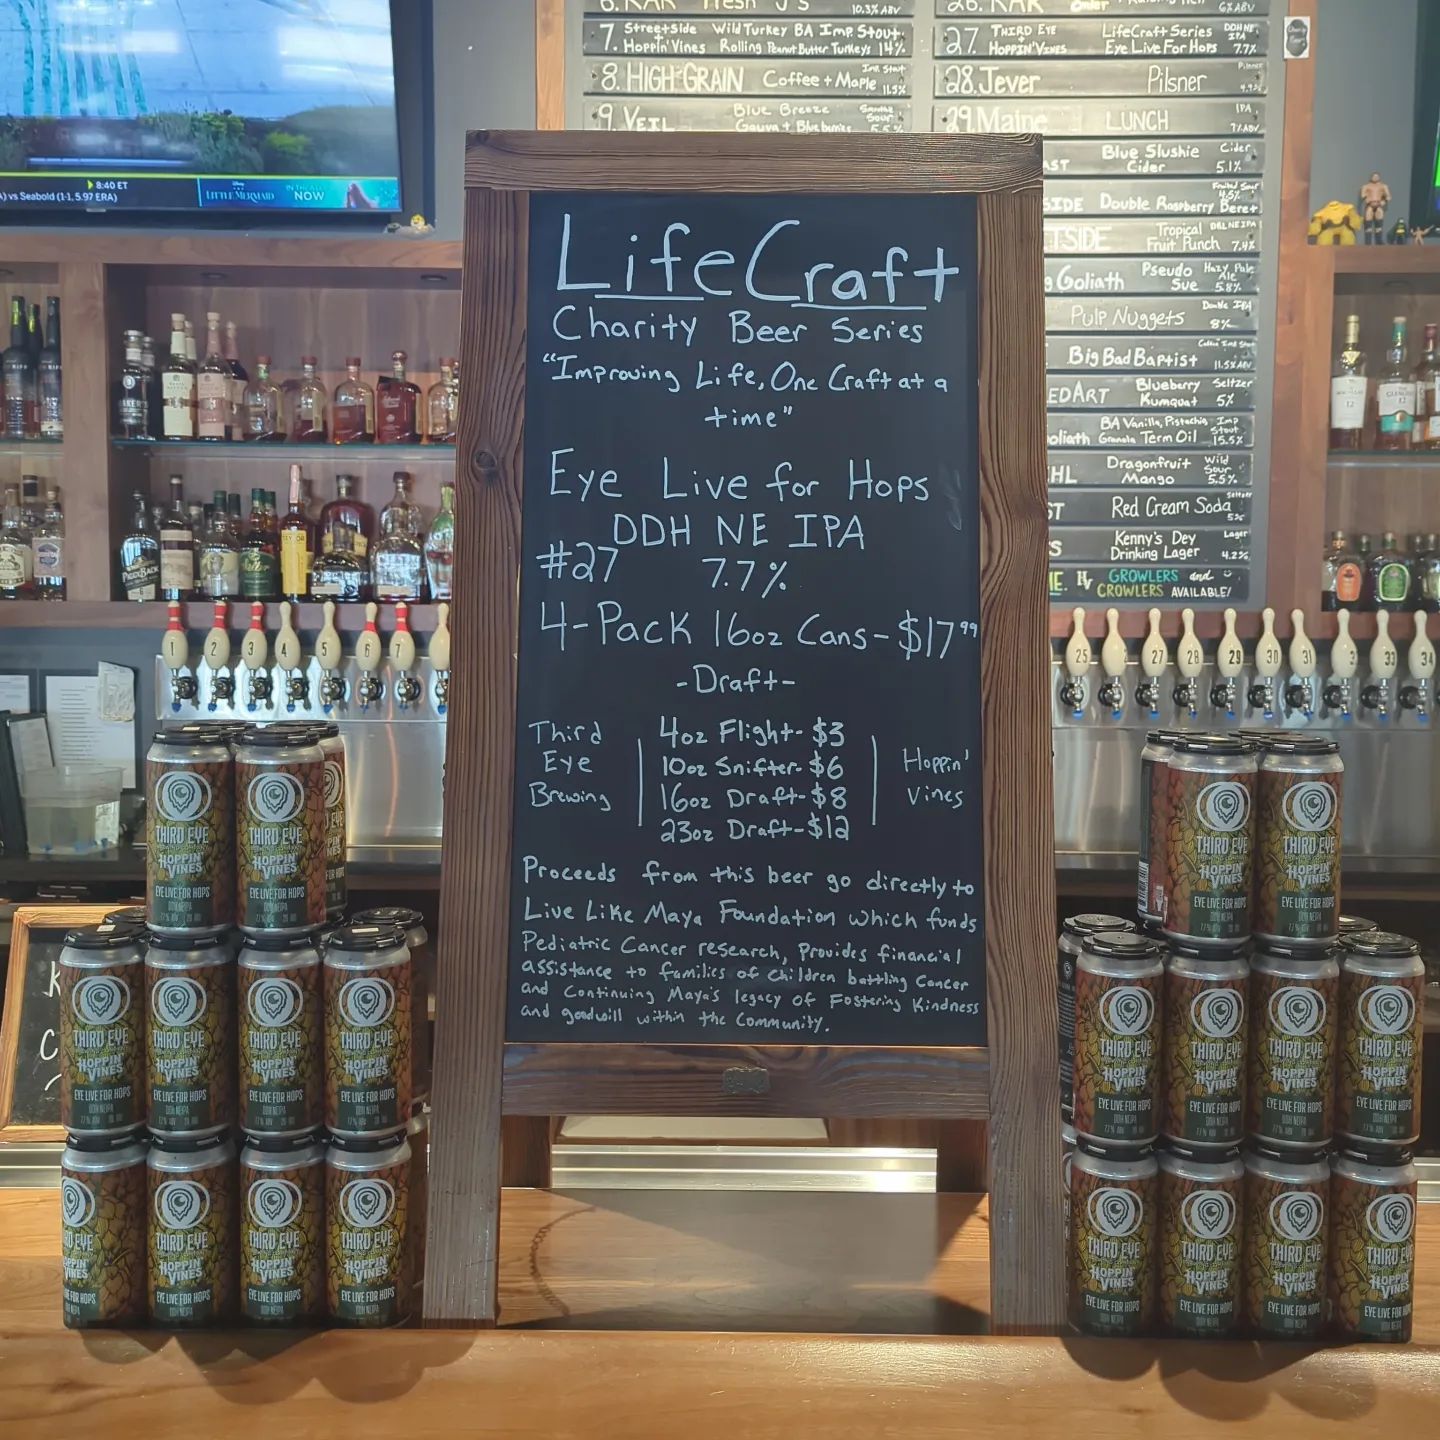 7. StreetSide Wild Turkey BA Imp. Stout
+ Hoppin' Vines Rolling Peanut Butter Turkeys 14%
8. HIGH GRAIN Coffee + Maple Imp. Stout 11.5%
9. VEIL Blue Breeze
10.3% ABV
6% ABV
27. THIRD EYE LifeCraft Series DDH NE IPA
+ HOPPIN' VINES Eye Live For Hops 7.7%
28. Jever Pilsner
29. Maine LUNCH IPA
Blue Slushie Cider
Cider 5.1%
SIDE Double Raspberry Beret 4.5%
TSIDE Tropical
Fruit Punch 7.4%
Goliath Pseudo Hazy Pale Ale
Sue 5.8%
Pulp Nuggets Double IPA
8%
Big Bad Baptist
11.5% ABV
EDART Blueberry Seltzer
Kumquat 5%
BA Vanilla, Pistachio Imp Stout
oliath Granola Term Oil 15.5%
HL Dragonfruit Wild Sour
Mango 5.5%
ST Red Cream Soda Seltzer
5%
S Kenny's Dey Lager
Drinking Lager 4.2%
GROWLERS and
CROWLERS AVAILABLE!
8:40 ET
vs Seabold (1-1, 5.97 ERA)
Disney
LITTLE MERMAID
IN THEATERS
NOW
LifeCraft
Charity Beer Series
"Improving Life, One Craft at a
time"
Eye Live for Hops
DDH NE IPA
#27 7.7%
4-Pack 16oz Cans - $17.99
-Draft-
Third 4oz Flight - $3
Eye 10oz Snifter - $6 Hoppin'
Brewing 16oz Draft - $8 Vines
23oz Draft - $12
Proceeds from this beer go directly to
Live Like Maya Foundation which funds
Pediatric Cancer research, provides financial
assistance to families of children battling Cancer
and Continuing Maya's legacy of Fostering Kindness
and goodwill within the Community.
1 2 3 4 5 6 7
25 27 28 29 30 31 33 34
THIRD EYE
HOPPIN' VINES
EYE LIVE FOR HOPS
DDH NEIPA
7.7% ABV